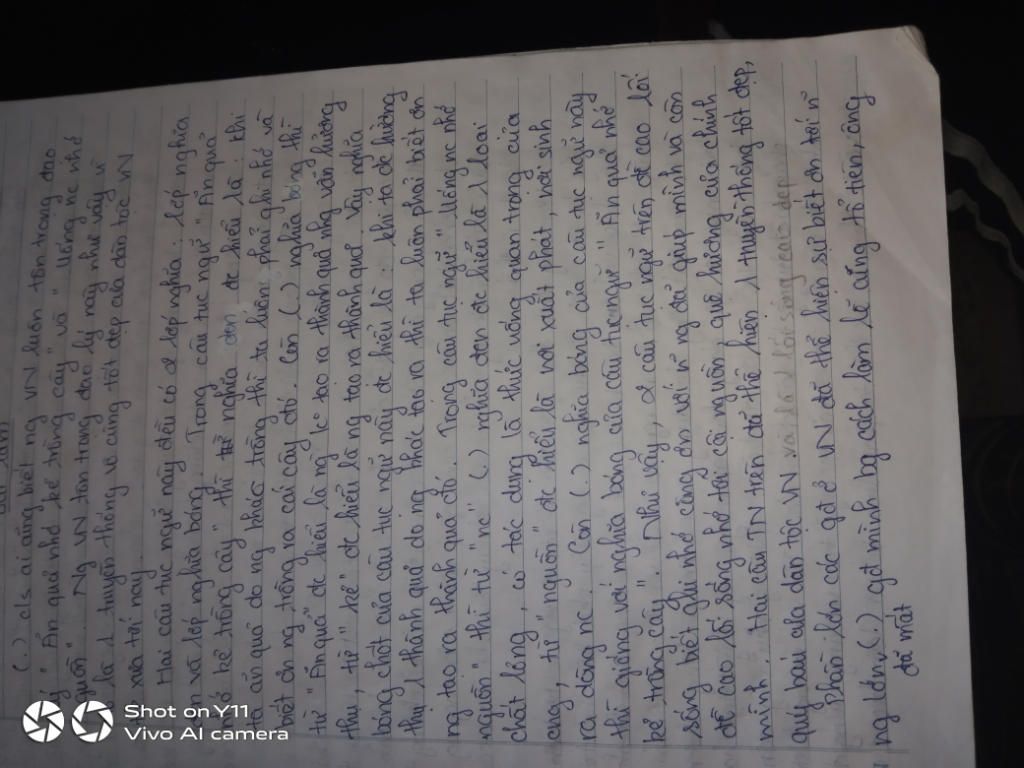 Bài làm
( ) cls ai ai cũng biết ng VN luôn tôn trọng đạo
lý "Ăn quả nhớ kẻ trồng cây" và "Uống nc nhớ
nguồn". Ng VN tôn trọng đạo lý này như vậy vì
là 1 truyền thống vô cùng tốt đẹp của dân tộc VN
từ xưa tới nay.
Hai câu tục ngữ này đều có 2 lớp nghĩa: lớp nghĩa
đen và lớp nghĩa bóng. Trong câu tục ngữ "Ăn quả
nhớ kẻ trồng cây" thì nghĩa đen đc hiểu là: khi
ta ăn quả do ng khác trồng thì ta luôn phải ghi nhớ và
biết ơn ng trồng ra cái cây đó. Còn ( ) nghĩa bóng thì
từ "Ăn quả" đc hiểu là ng tạo ra thành quả nhưng vẫn hưởng
thụ, từ "kẻ" đc hiểu là ng tạo ra thành quả. Vậy nghĩa
bóng chốt của câu tục ngữ này đc hiểu là: khi ta đc hưởng
thụ 1 thành quả do ng khác tạo ra thì ta luôn phải biết ơn
ng tạo ra thành quả đó. Trong câu tục ngữ "Uống nc nhớ
nguồn" thì từ "nc" ( ) nghĩa đen đc hiểu là 1 loại
chất lỏng, có tác dụng là thức uống quan trọng của
ng, từ "nguồn" đc hiểu là nơi xuất phát, nơi sinh
ra dòng nc. Còn ( ) nghĩa bóng của câu tục ngữ này
thì giống với nghĩa bóng của câu tục ngữ "Ăn quả nhớ
kẻ trồng cây". Như vậy, 2 câu tục ngữ trên đề cao lối
sống biết ghi nhớ công ơn với ng đã giúp mình và còn
đề cao lối sống nhớ tới cội nguồn quê hương của chính
mình. Hai câu TN trên đã thể hiện 1 truyền thống tốt đẹp,
quý báu của dân tộc VN và là 1 lối sống cao đẹp
Phần lớn các gđ ở VN đã thể hiện sự biết ơn tới n~
ng lớn ( ) gđ mình bg cách làm lễ cúng tổ tiên, ông
đã mất
Shot on Y11
Vivo AI camera